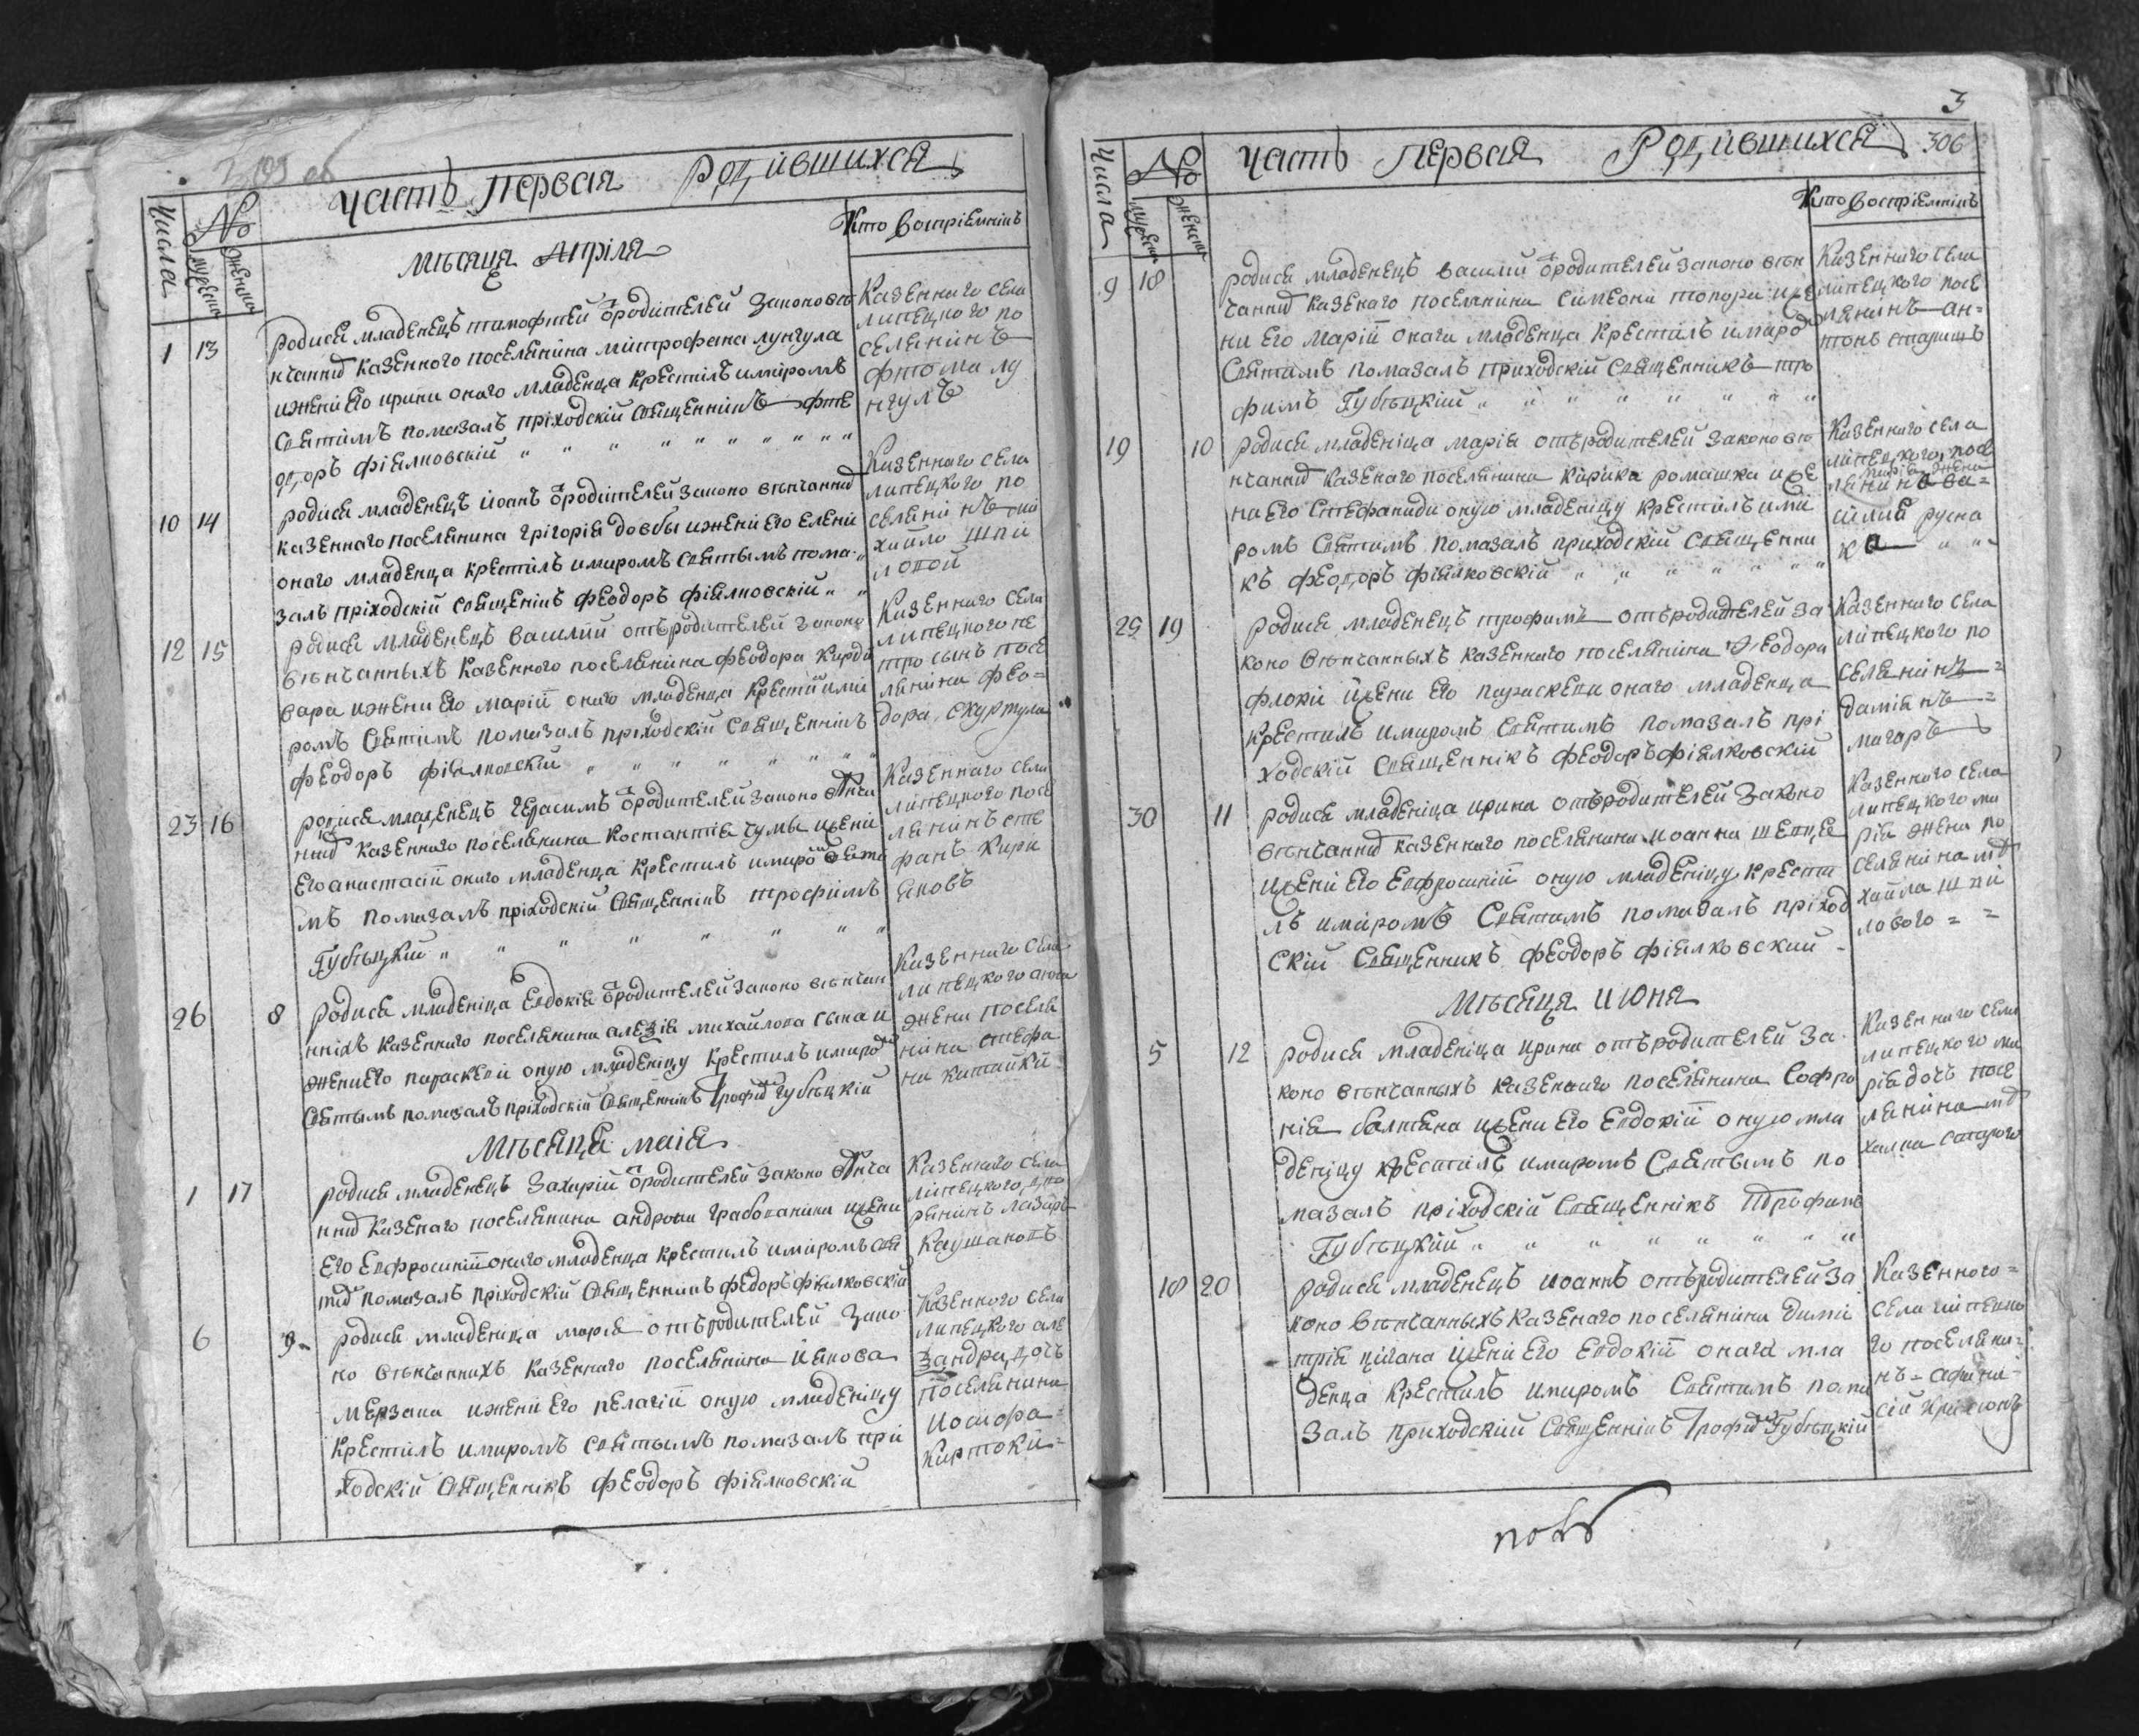 Часть Первая Родившихся
Числа № мужеска женска
Кто воспріемникъ
Мѣсяца Апріля
1 13 родися младенецъ тимофтей ѿ родителей законовѣ
нчанныхъ казенного поселянина митрофана лунгула
и жени его ирини онаго младенца крестилъ и миромъ
святимъ помазалъ приходскій священникъ фте
одоръ фіялковскій
Казенного села
липецкого по
селянинъ
фтома лу
нгулъ
10 14 родися младенецъ иоанъ ѿ родителей законо вѣнчанныхъ
казенного поселянина григорія довбы и жени его елени
онаго младенца крестилъ и миромъ святымъ пома
залъ приходскій священикъ феодоръ фіялковскій
Казенного села
липецкого по
селяни нъ ми
хайло шпи
ловой
12 15 родися младенецъ василий отъ родителей законо
вѣнчанныхъ казенного поселянина феодора кирди
вара и жени его маріи онаго младенца крестилъ и ми
ромъ святимъ помазалъ приходскій священникъ
феодоръ фіялковскій
Казенного села
липецкого пе
тро сынъ посе
лянина фео=
дора скуртула
23 16 родися младенецъ герасимъ ѿ родителей законо вѣнча
нныхъ казенного поселянина костантія чумы и жени
его анистасіи онаго младенца крестилъ и миромъ святи
мъ помазалъ приходскій священникъ трофимъ
Губѣцкій
Казенного села
липецкого посе
лянинъ сте
фанъ кири
яковъ
26 8 родися младеница евдокія ѿ родителей законо вѣнчан
нихъ казенного поселянина алезія михайлова сына и
жени его параскеви оную младеницу крестилъ и миромъ
святымъ помазалъ приходскій священникъ трофимъ губѣцкій
Казенного села
липецкого анна
жени поселя
нина стефа
на китайки
Мѣсяца маія
1 17 родися младенецъ захарій ѿ родителей законо вѣнча
нныхъ казенаго поселянина андрона грабованини и жени
его евфросиніи онаго младенца крестилъ и миромъ свя
тымъ помазалъ приходскій священникъ федоръ фіялковскій
Казенного села
липецкого дво
рянинъ лазаръ
Каушановъ
6 9 родися младеница марія отъ родителей зако
но вѣнчаннихъ казенного поселянина иякова
мерзана и жени его пелагіи оную младеницу
крестилъ и миромъ святымъ помазалъ при
ходскій священникъ феодоръ фіялковскій
Казенного села
липецкого але
зандра дочъ
поселянина
иосифа
Киртоки
3
306
Часть Первая Родившихся
Числа № мужеска женска
Кто воспріемникъ
9 18 родися младенецъ василий ѿ родителей законо вѣн
чанныхъ казенаго поселянина симеона топора и же
ни его маріи онаго младенца крестилъ и миромъ
святимъ помазалъ приходскій священникъ тро
фимъ Губѣцкій
Казенного села
липецкого посе
лянинъ ан=
тонъ старишъ
19 10 родися младеница марія отъ родителей законо вѣ
нчанныхъ казенаго поселянина кирика ромашка и же
ни его стефаниди оную младеницу крестилъ и ми
ромъ святимъ помазалъ приходскій священни
къ феодоръ фіялковскій
Казенного села
липецкого посе
марія жена
лянина ва=
силия русна
ка
25 19 родися младенецъ трофимъ отъ родителей за
коно вѣнчанныхъ казенного поселянина феодора
флоки и жени его параскеви онаго младенца
крестилъ и миромъ святимъ помазалъ при
ходскій священникъ феодоръ фіялковскій
Казенного села
липецкого по
селянинъ=
даміянъ=
магаръ
30 11 родися младеница ирина отъ родителей законо
вѣнчанныхъ казенного поселянина иоанна шевце
и жени его евфросиніи оную младеницу крести
лъ и миромъ святимъ помазалъ приход
скій священникъ феодоръ фіялковский
Казенного села
липецкого ма
рія жена по
селянина ми
хайла шпи
лового = =
Мѣсяца июня
5 12 родися младеница ирина отъ родителей за
коно вѣнчанныхъ казенаго поселянина софро
нія балтана и жени его евдокіи оную мла
деницу крестилъ и миромъ святымъ по
мазалъ приходскій священникъ Трофимъ
Губѣцкий
Казенного села
липецкого ма
рія дочъ посе
лянина ми
хаила старого
18 20 родися младенецъ иоаннъ отъ родителей за
коно вѣнчанныхъ казенаго поселянина дими
трія цигана и жени его евдокіи онага мла
денца крестилъ и миромъ святимъ пома
залъ приходский священникъ трофимъ Губѣцкій
Казенного=
села липецко
го поселяни=
нъ=афана
сій